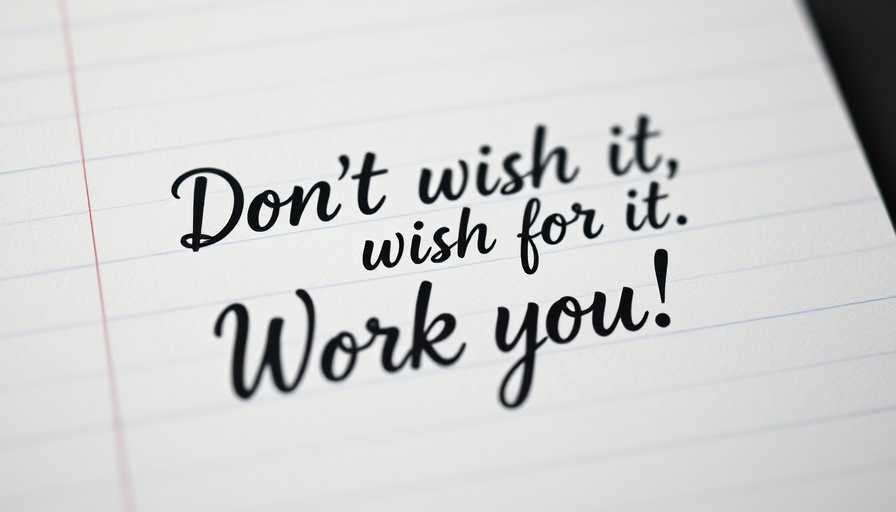 Don't wish it,
wish for it.
Work you!